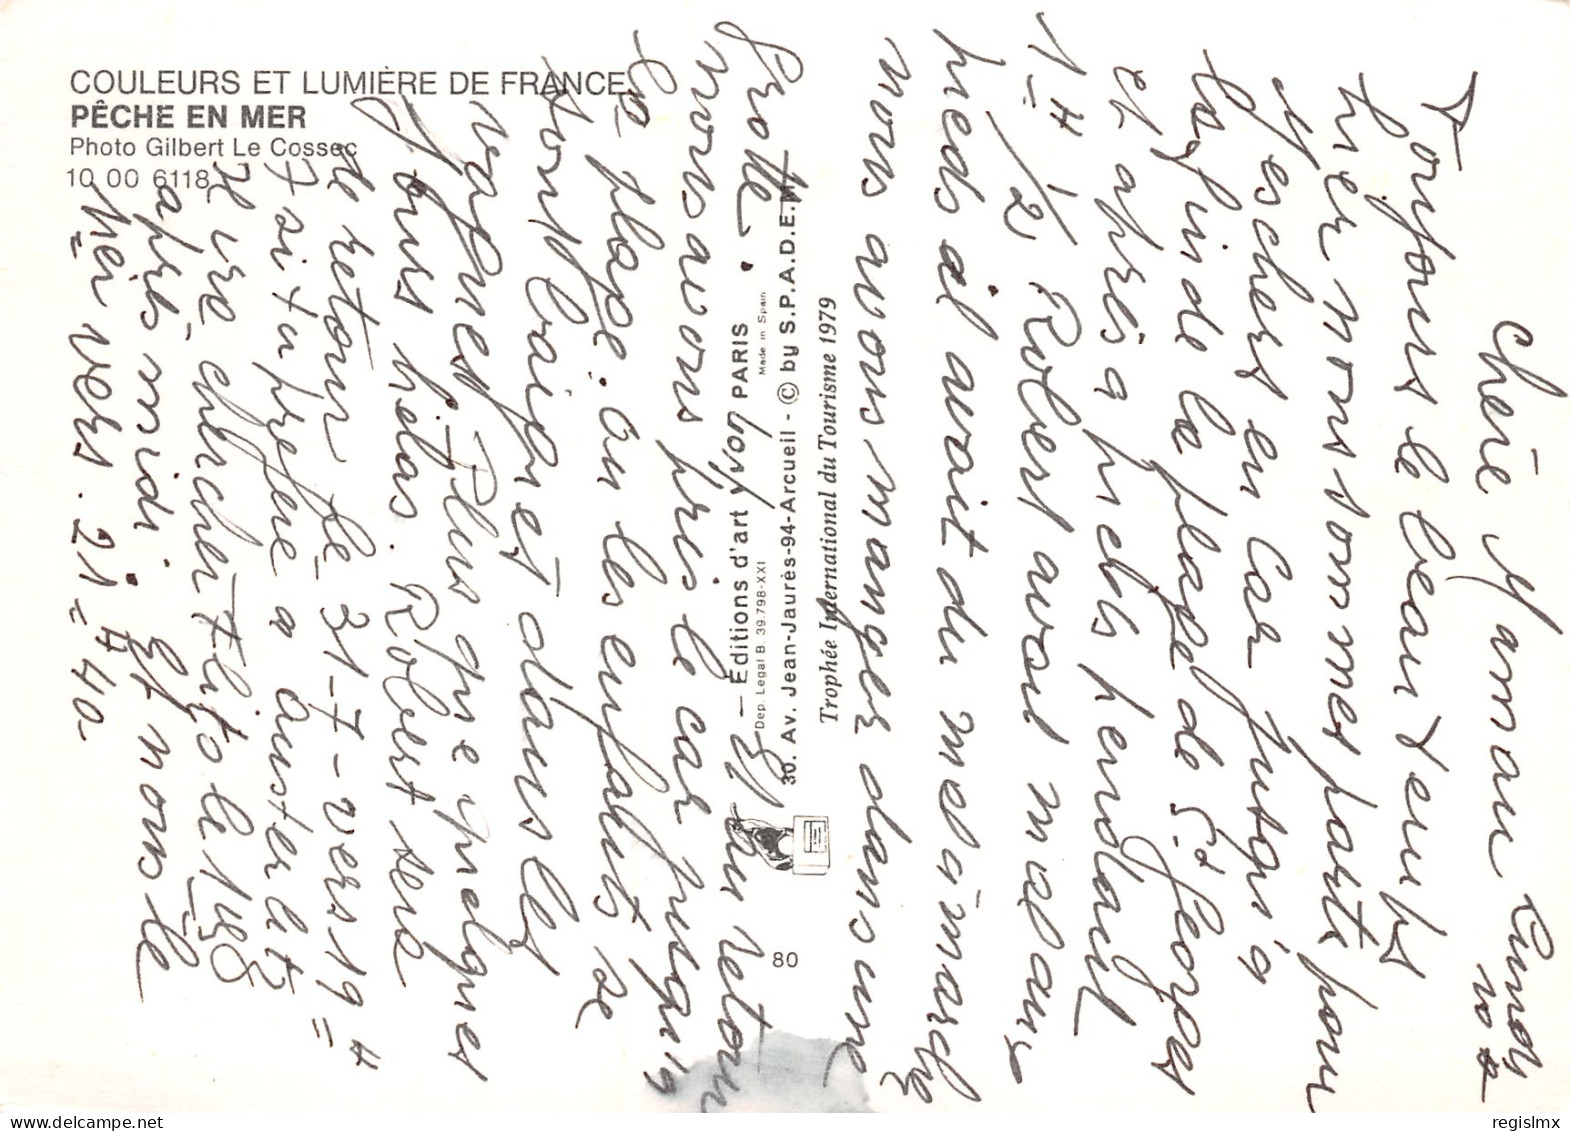 COULEURS ET LUMIÈRE DE FRANCE
PÊCHE EN MER
Photo Gilbert Le Cossec
10 00 6118
Éditions d'art Yvon PARIS
Dep. Legal B. 39.798-XXI
Made in Spain
30. Av. Jean-Jaurès-94-Arcueil - © by S.P.A.D.E.M.
Trophée International du Tourisme 1979
80
Chère Maman Lundi
Toujours le beau temps
hier nous sommes partis pour
Nescherf en car jusqu'a
la fin de la plage de St Georges
et après a pieds pendant
1H 1/2 Robert avait mal aux
pieds il avait du mes a marche
nous avons manger dans une
Grotte. Et au retour
nous avons pris le car jusqu'a
la plage. ou les enfants se
sont baignet dans les
vagues. Plus que quelques
jours hélas. Robert sera
de retour le 31-7-vers 19H
7 si tu prefere a austerlitz
Yvre chercher tlito le 1
après midi et nous le
Mer vers. 21H 40
regislmx